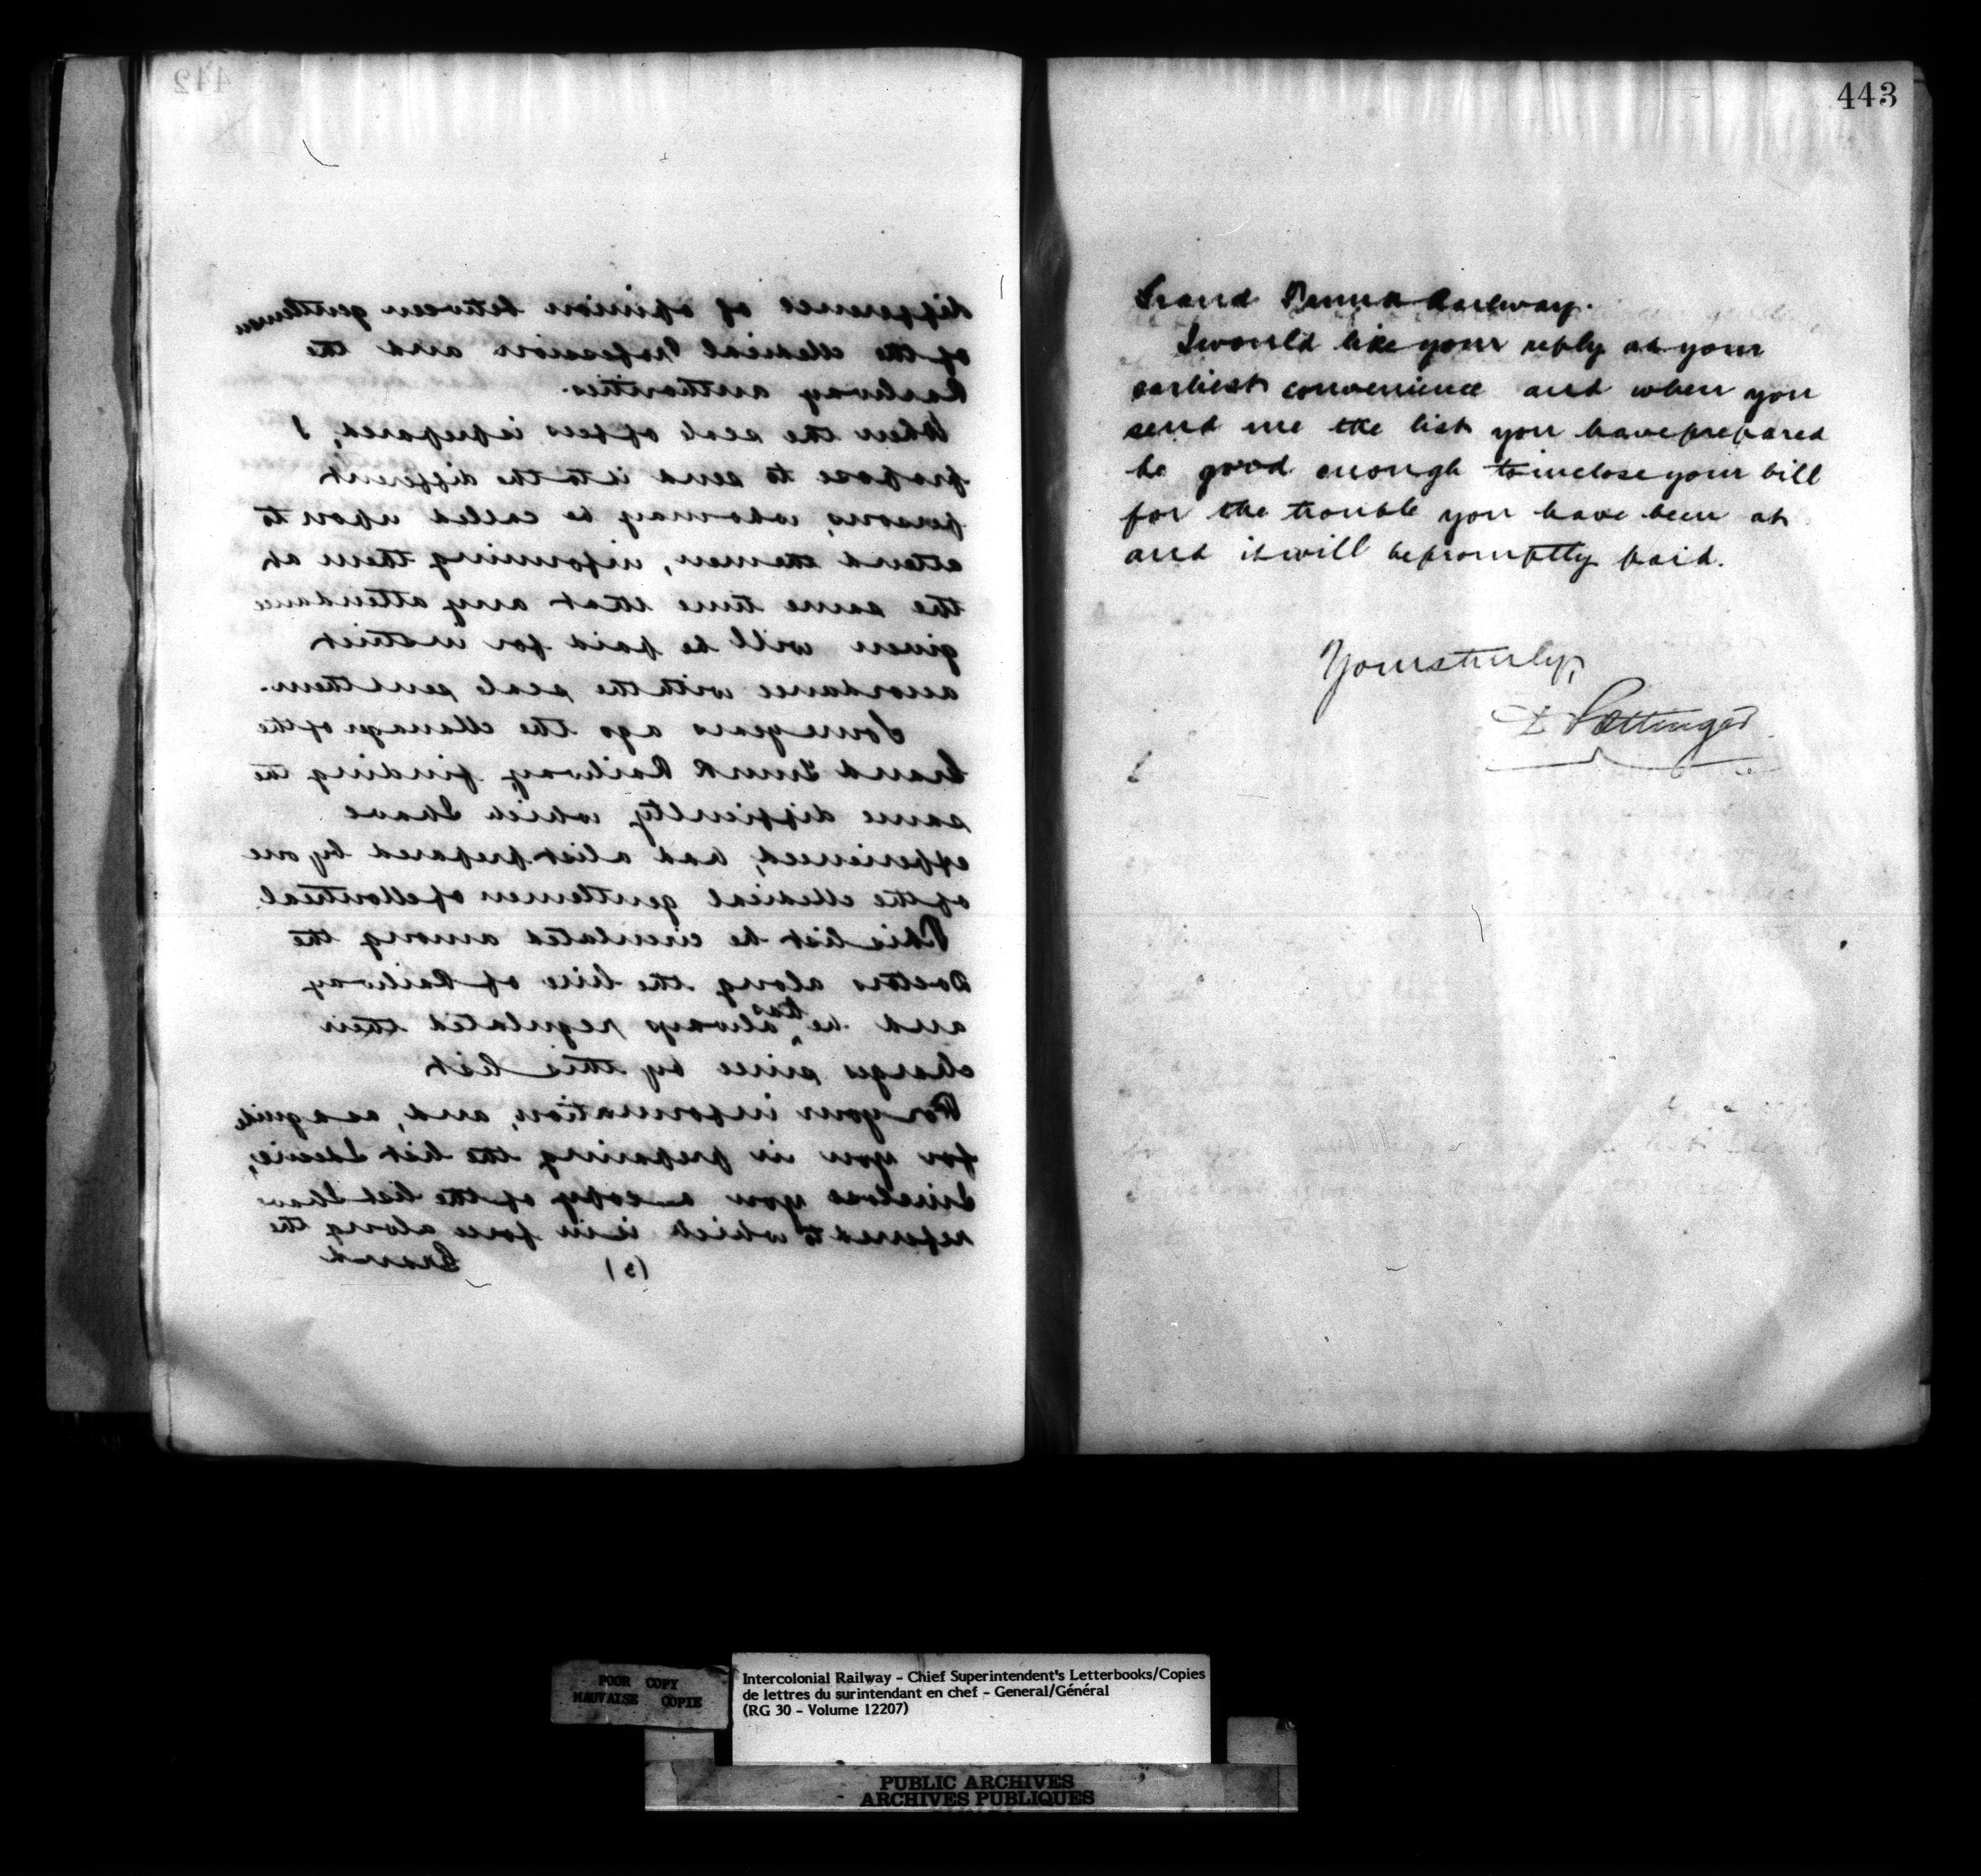 442
difference of opinion between gentlemen
of the Medical Profession and the
Railway authorities.
When the scale of fees is prepared, I
propose to send it to the different
persons, who may be called upon to
attend the men, informing them at
the same time that any attendance
given will be paid for in strict
accordance with the scale sent them.
Some years ago the Manager of the
Grand Trunk Railway, finding the
same difficulty which I have
experienced, had a list prepared by one
of the Medical gentlemen of Montreal
This list he circulated among the
Doctors along the line of Railway
and he has always regulated their
charges since by this list
For your information, and, as a guide
for you in preparing the list I desire,
I inclose you a copy of the list I have
referred to which is in force along the
Grand
443
Grand Trunk Railway.
I would like your reply at your
earliest convenience and when you
send me the list you have prepared
be good enough to inclose your bill
for the trouble you have been at
and it will be promptly paid.
Yours truly,
D Pottinger
POOR COPY
MAUVAISE COPIE
Intercolonial Railway - Chief Superintendent's Letterbooks/Copies
de lettres du surintendant en chef - General/Général
(RG 30 - Volume 12207)
PUBLIC ARCHIVES
ARCHIVES PUBLIQUES